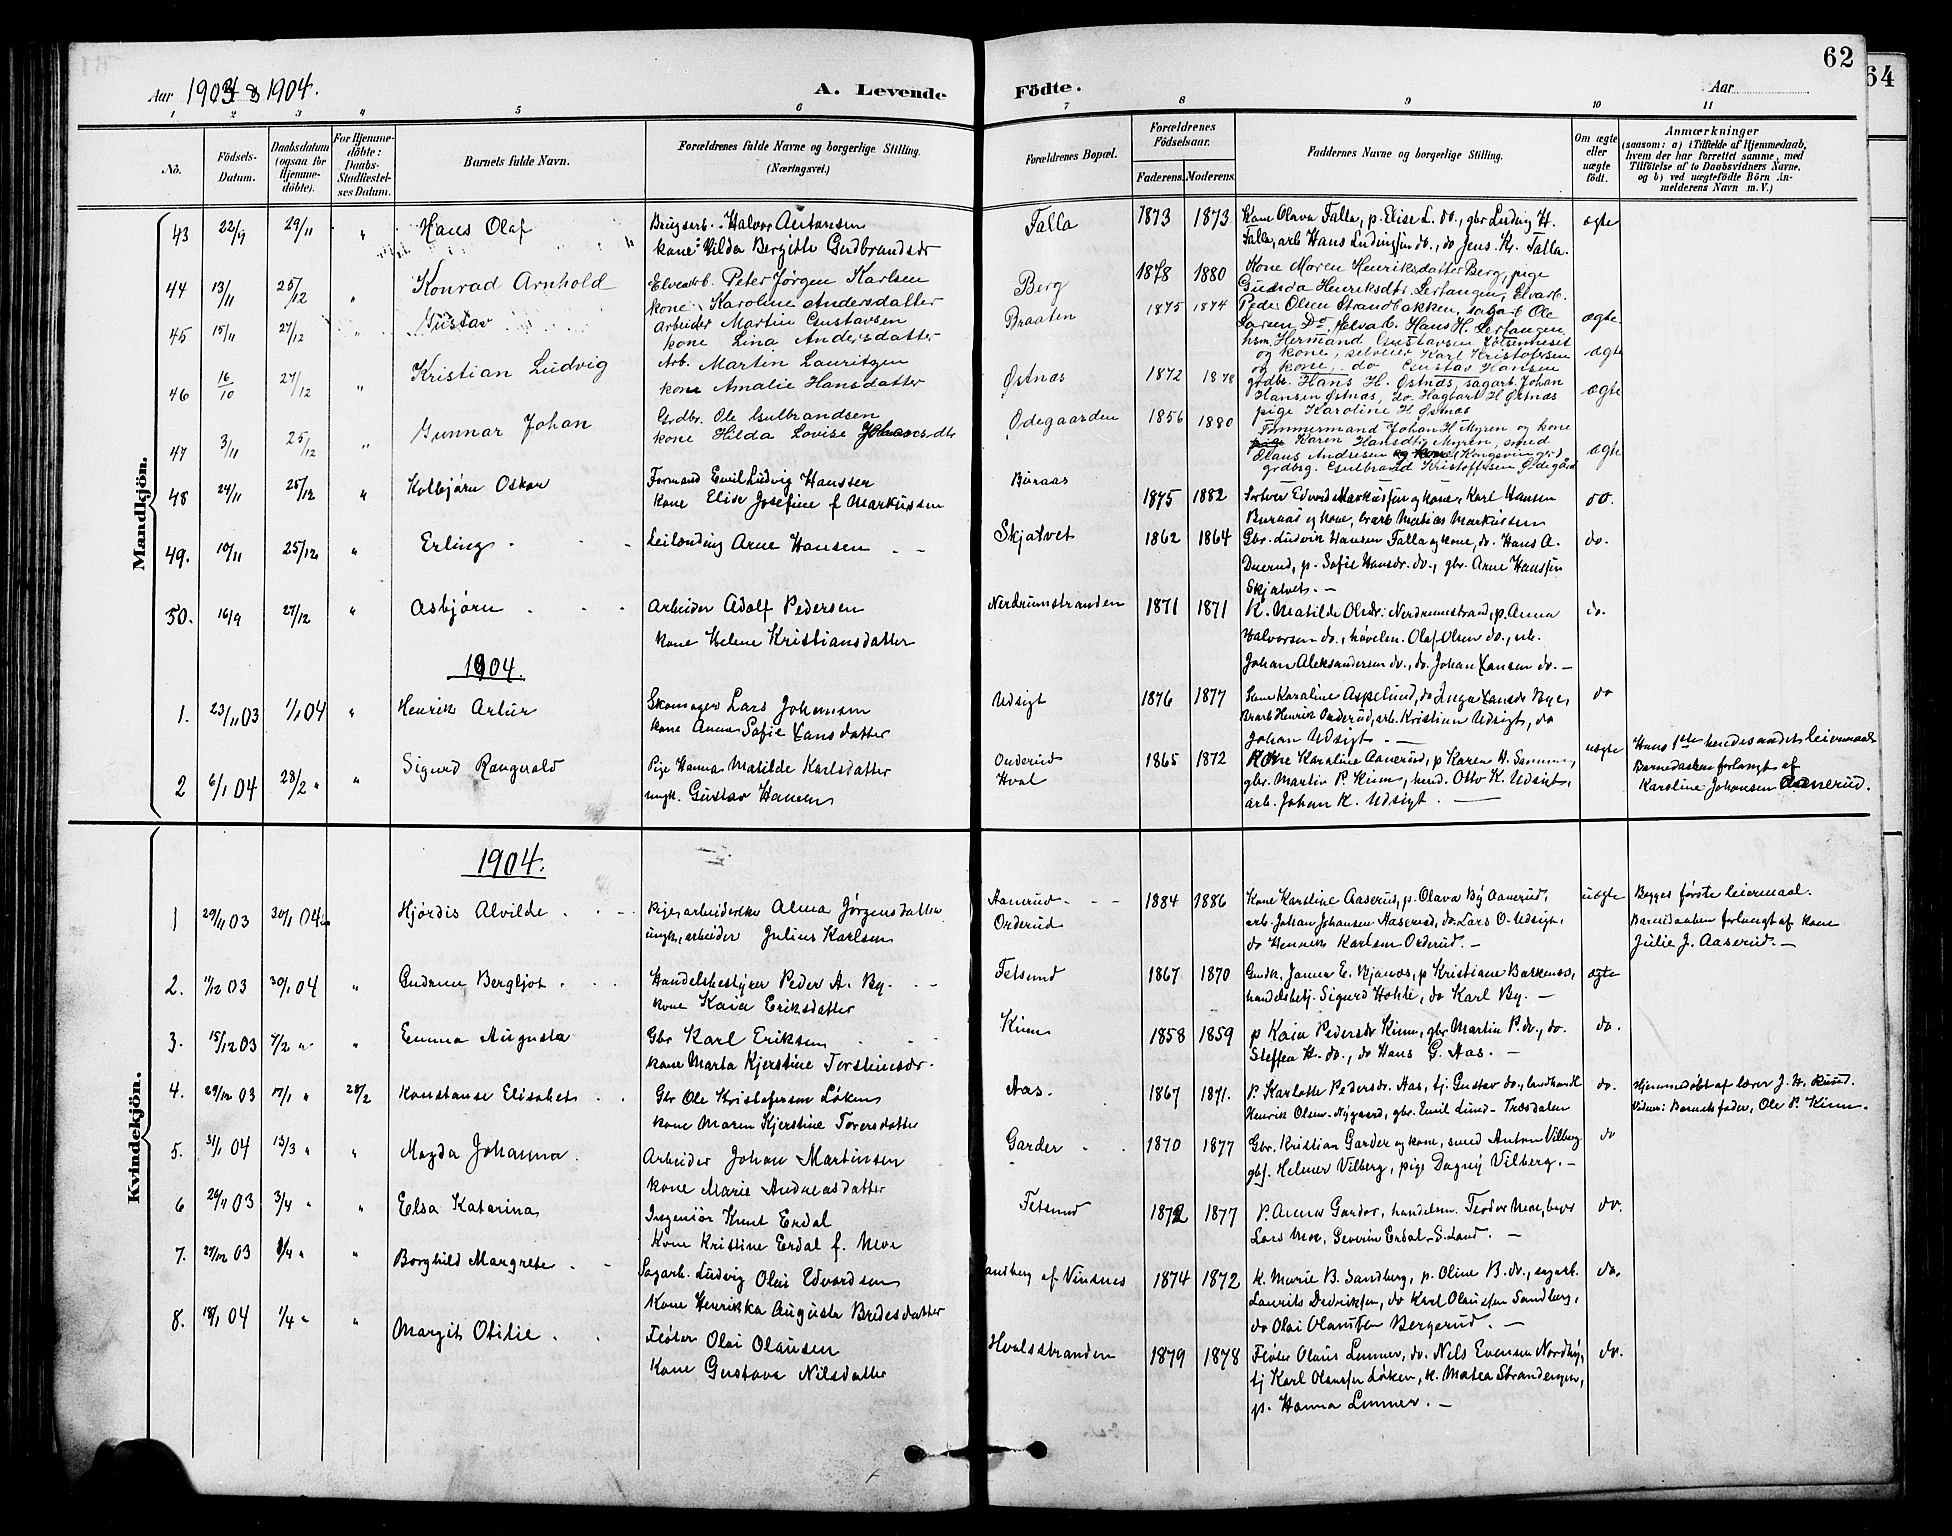 62
64
Aar 1903 & 1904.
A. Levende Födte.
Aar
1 2 3 4 5 6 7 8 9 10 11
No.
Födsels-Datum.
Daabsdatum (ogsaa for Hjemme-döbte).
For Hjemme-döbte: Daabs-Stadfæstel-ses Datum.
Barnets fulde Navn.
Forældrenes fulde Navne og borgerlige Stilling. (Næringsvei.)
Forældrenes Bopæl.
Forældrenes Födselsaar.
Faderens. Moderens.
Faddernes Navne og borgerlige Stilling.
Om ægte eller uægte födt.
Anmærkninger
(saasom: a) i Tilfælde af Hjemmedaab, hvem der har forrettet samme, med Tilföielse af to Daabsvidners Navne, og b) ved uægtefödte Börn An-melderens Navn m. V.)
Mandkjön.
43 22/9 29/11 " Hans Olaf Brugserb. Halvor Antonsen Falla 1873 1873 Kone Olava Falla, p. Elise L. do., gbr Ludvig H. ægte
kone: Hilda Bergitte Gudbrandsdr Falla, arb Hans Ludvigsen do., do Jens Kr. Falla.
44 13/11 25/12 " Konrad Arnhold Elvearb. Peter Jørgen Karlsen Berg 1878 1880 Kone Maren Henriksdatter Berg, pige
kone Karoline Andersdatter Gunda Henriksdtr. Lerfangen, Elvarb.
45 15/11 27/12 Gustav Arbeider Martin Gustavsen Braaten 1875 1874 Peder Olsen Strandbakken, sagarb Ole
kone Lina Andersdatter Larsen Do, Elvarb. Hans H. Lerfangen ægte
hsm. Hermand Gustavsen
46 16/10 27/12 " Kristian Ludvig Arb. Martin Lauritzen Østnæs 1872 1878 og kone, selveier Karl Kristofersen ægte
kone Amalie Hansdatter og kone, do Gustav Hansen
grdbr. Hans H. Østnæs, sagarb. Johan
Hansen Østnæs, do. Hagbart H Østnæs ægte
pige Karoline H Østnæs
47 3/11 25/12 " Gunnar Johan Grdbr. Ole Gulbrandsen Ødegaarden 1856 1880 Tømmermand Johan H Myren og kone
kone Hilda Lovise Johansdtr Karen Hansdtr Myren, smed
Olaus Andresen og kone (Kongsvinger) ægte
grdbrg. Gulbrand Kristoffersen Ødegård
48 24/11 25/12 " Kolbjørn Oskar Formand Emil Ludvig Hansen Buraas 1875 1882 Edvard Markussen og kone, Karl Hansen do.
Kone Elise Josefine f Markussen Buraas og kone, arb Matias Markussen
49. 10/11 25/12 " Erling Leilænding Arne Hansen Skjatvet 1862 1864 Gbr. Ludvik Hansen Falla og kone, do. Hans A. do.
Duerud, p. Sofie Hansdr. do., gbr. Arne Hanssen
Skjatvet.
50. 16/9 27/12 " Asbjørn Arbeider Adolf Pedersen Nerdrumstranden 1871 1871 K. Matilde Olsdr. Nerdrumstrand, p. Anna do.
kone Helene Kristiansdatter Halvorsen do., høvelen. Olaf Olsen do., arb.
Johan Aleksandersen do., do. Johan Hansen do.
1904.
1. 23/11 03 1/1 04 " Henrik Artur Skomager Lars Johansen Udsigt 1876 1877 Kone Karoline Aspelund, do Inga Hansdr Bye, do
kone Anna Sofie Hansdatter arb Henrik Orderud, arb. Kristian Udsigt, do
Johan Udsigt
2 6/1 04 28/2 " " Sigurd Rangvald Pige Hanna Matilde Karlsdatter Orderud 1865 1872 Kone Karoline Aanerud, p Karen H. Sannes, uægte Hans 1ste hendes andet leiermaal
ungk. Gustav Hansen Hval gbr. Martin P. Kinn, hmd. Otto K. Udsigt, Barnedaaben forlangt af
arb. Johan K. Udsigt. Karoline Johansen Aanerud.
Kvindekjön.
1904.
1 29/11 03 30/1 04 Hjørdis Alvilde Pige, arbeiderske Alma Jørgensdatter Aanerud 1884 1886 Kone Karoline Aaserud, p. Olava By Aanerud, uægte Begges første leiermaal.
ungk, arbeider Julius Karlsen Orderud arb. Johan Johansen Aaserud, do. Lars O. Udsigt, Barnedaaben forlangt af kone
do Henrik Karlsen Orderud. Julie J. Aaserud.
2. 11/12 03 30/1 04 " Gudrun Bergljot Handelsbestyrer Peder A. By Fetsund 1867 1870 Janna E. Bjanæs, p Kristiane Bakkenæs, ægte
kone Kaia Eriksdatter handelsbetj. Sigurd Hohle, do Karl By.
3. 15/12 03 7/2 " " Emma Augusta Gbr Karl Eriksen Kinn 1858 1859 p Kaia Pedersdr Kinn, gbr Martin P. do., do. do.
kone Marta Kjerstine Torstensdr. Steffen H. do., do Hans G. Aas.
4. 29/12 03 17/1 " 28/2 Konstanse Elisabet Gbr Ole Kristofersen Løken Aas. 1867 1871. P. Karlotte Pedersdr. Aas, tj Gustav do., landhandl do. Hjemmedøbt af lærer J. H. Ruud.
kone Maren Kjerstine Torersdatter Henrik Olsen Nygaard, gbr. Emil Lund - Træsdalen Vidner: Barnets fader, Ole P. Kinn.
5. 31/1 04 13/3 " " Magda Johanna Arbeider Johan Martinsen Garder 1870 1877 Gbr. Kristian Garder og kone, smed Anton Vilberg do
kone Marie Andreasdatter gbs. Helmer Vilberg, pige Dagny Vilberg.
6 26/11 03 3/4 " " Elsa Katarina Ingeniør Knut Erdal Fetsund 1872 1877 P. Anna Garder, handelsm. Teodor Moe, do.
Kone Kristine Erdal f. Moe Lars Moe, Severin Erdal, S. Land.
7. 27/12 03 3/4 " " Borghild Margrete Sagarb. Ludvig Olai Edvardsen Sandberg af Vinsnes 1874 1872 k. Marie B. Sandberg, p. Oline B. do., sagarb. do.
Kone Henrikka Augusta Bredesdatter Laurits Dedriksen, do Karl Olaussen Sandberg,
do Olai Olaussen Bergerud.
8. 18/1 04 1/4 " " Margit Otilie Fløter Olai Olausen Hvalsstranden 1879 1878 Fløter Olaus Lunner, do. Nils Evensen Nordby, do.
Kone Gustava Nilsdatter tj Karl Olaussen Løken, k. Matea Strandengen,
p. Hanna Lunner.